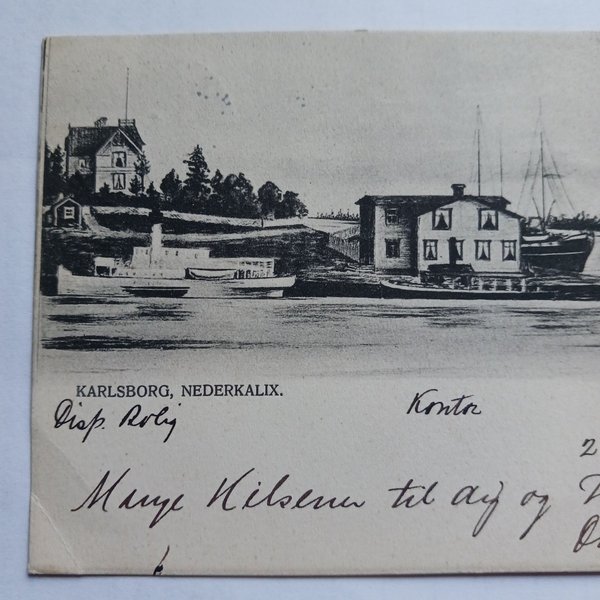 KARLSBORG, NEDERKALIX.
Disp. Bolig Kontor
2
Mange Hilsener til dig og